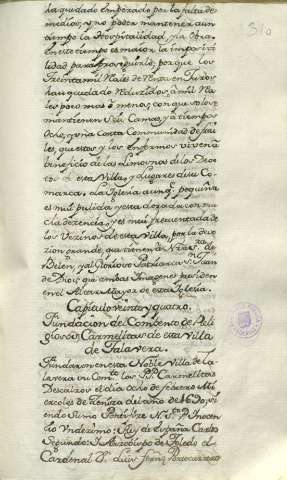 310
ha quedado empezado por la falta de
medios, y no poder mantener a un
tiempo la Hospitalidad, y la Obra,
en este tiempo es maior la imposivi
lidad para proseguirlo, porque los
treinta mil Rais de Renta en Juros
han quedado reduzidos, a mil Rea
les poco mas o menos, con que solo se
mantienen seis Camas, y a tiempos
ocho, y una Corta Comunidad de frai
les, que estos y los enfermos viven a
beneficio de las Limosnas de los Devo
tos de esta Villa, y Lugares de su Co
marca. La Iglesia aunq.e pequeña
es mui pulida, y esta dorada con mu
cha dezencia, y es mui frequentada de
los Vezinos de esta Villa, por la devo
zion grande que tienen de Ntra S.ra de
Belen, y al Glorioso Patriarca S.n Juan
de Dios, que ambas Imagenes presiden
en el Altar Mayor de esta Iglesia.
Capitulo veinte y quatro.
Fundacion del Combento de Reli
giosos Carmelitas de esta Villa
de Talavera.
Fundaron en esta Noble Villa de Ta
lavera un Com.to los PP. Carmelitas
Descalzos el dia ocho de febrero Mi
ercoles de Zeniza del año de
siendo Sumo Pontifize N. S.mo P. Inocen
cio Undezimo: Rey de España Carlos
Segundo: I Arzobispo de Toledo el
Cardenal D.n Luis Portocarrero